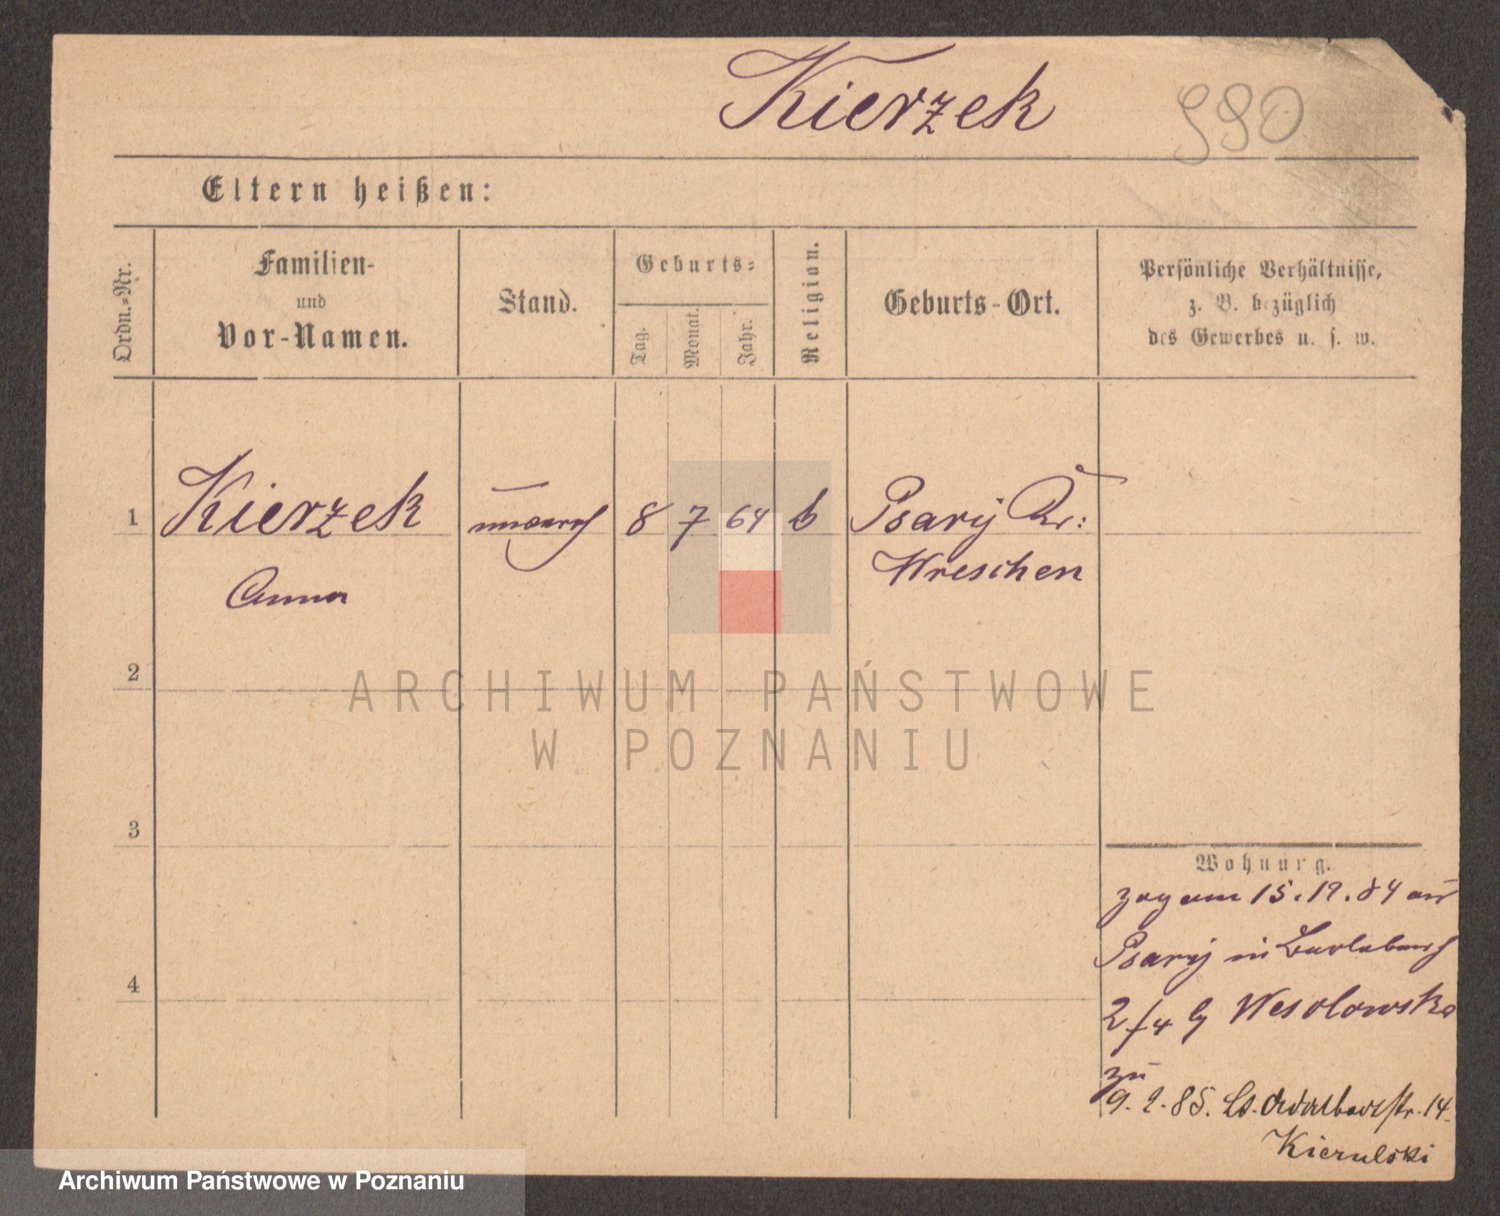 Kierzek 990
Eltern heißen:
Ordn.-Nr.
Familien-
und
Vor-Namen.
Stand.
Geburts-
Tag.
Monat.
Jahr.
Religion.
Geburts-Ort.
Persönliche Verhältnisse,
z. B. bezüglich
des Gewerbes u. s. w.
1 Kierzek 8 7 64 Psarÿ Kr:
Anna Wreschen
2
ARCHIWUM PAŃSTWOWE
W POZNANIU
3
Wohnung.
zog am 15.12.84 aus
Psarÿ in
2/4 Wesolowska
4
zu
9.2.85. 14.
Kierulski
Archiwum Państwowe w Poznaniu